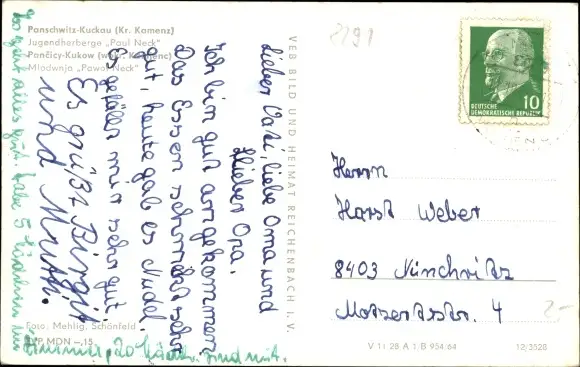 Panschwitz-Kuckau (Kr. Kamenz)
Jugendherberge „Paul Neck"
Pančicy-Kukow
Młodownja „Pawoł Neck"
2291
Lieber Vati, liebe Oma und
lieber Opa.
Ich bin gut angekommen.
Das Essen schmeckt sehr
gut, heute gab es Nudel.
Es gefällt mir sehr gut.
Es grüßt Birgit
und Mutti.
Es geht alles gut. habe 5 Mädchen im
Zimmer, 20 Mädch. sind mit.
VEB BILD UND HEIMAT REICHENBACH I. V.
DEUTSCHE
DEMOKRATISCHE REPUBLIK
10
Herrn
Horst Weber
8403 Nünchritz
Mozartstr. 4
2-
Foto: Mehlig, Schönfeld
EVP MDN –,15
V 11 28 A 1 B 954/64
12/3528